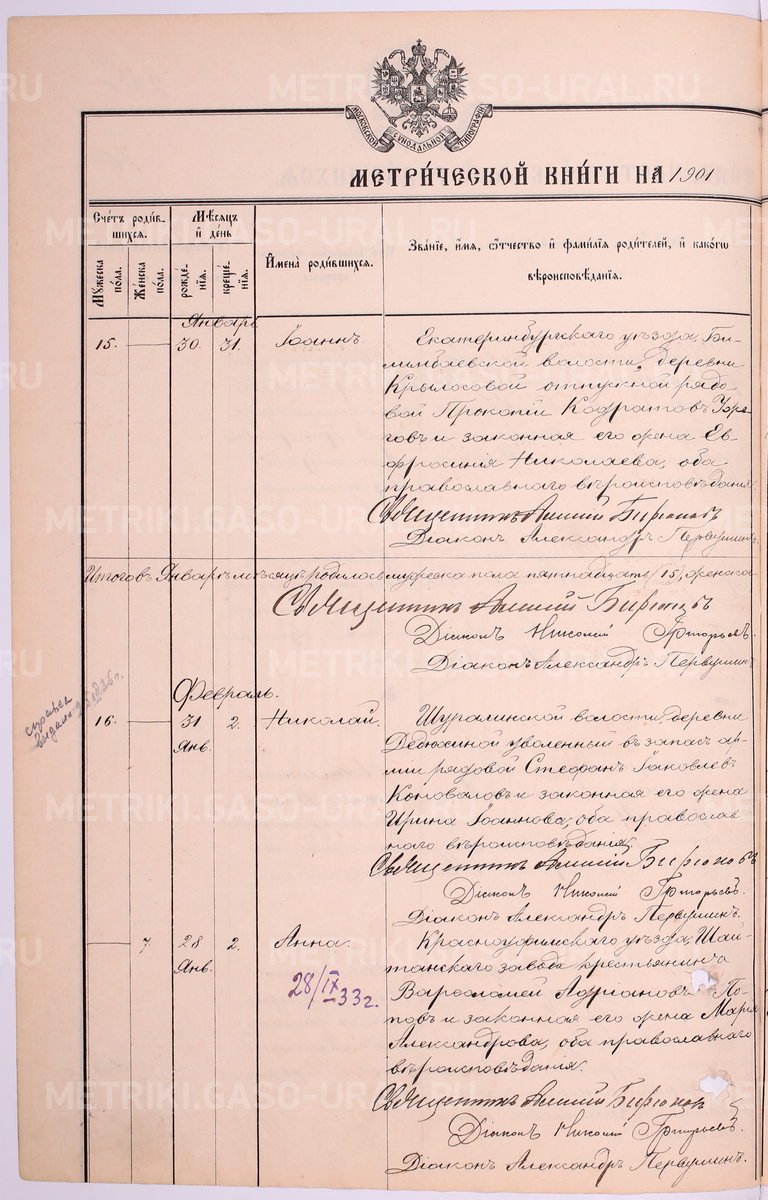 МОСКОВСКОЙ СѴНОДАЛЬНОЙ ТИПОГРАФІИ
МЕТРИ́ЧЕСКОЙ КНИ́ГИ НА 1901
Сче́тъ роди́в-
шихся.
Мѣ́сяцъ
и҆ де́нь
И҆мена̀ роди́вшихся.
Зва́нїе, и҆́мя, ѻ҆́тчество и҆ фами́лїя роди́телей, и҆ како́гѡ
вѣроисповѣ́данїя.
Му́жеска по́ла.
Же́нска по́ла.
рожде́-нїя.
креще́-нїя.
Январь
15. 30. 31. Іоаннъ.
Екатеринбургскаго уѣзда, Би-
лимбаевской волости, деревни
Крылосовой отпускной рядо-
вой Прокопій Кодратовъ
и законная его жена Ев-
фросинія Николаева, оба
православнаго вѣроисповѣданія
Священникъ Бирюковъ
Діаконъ Александръ Первушинъ.
Итого въ Январѣ мѣсяцѣ родилось мужеска пола пятнадцать /15/, женска
Священникъ Бирюковъ
Діаконъ Николай Григорьевъ.
Діаконъ Александръ Первушинъ
Февраль.
справка
выдана
16. 31 Янв. 2. Николай.
Шуралинской волости, деревни
уволенный въ запасъ ар-
міи рядовой Стефанъ Іаковлевъ
Коноваловъ и законная его жена
Ирина Іоаннова, оба православ-
наго вѣроисповѣданія.
Священникъ Бирюковъ
Діаконъ Николай Григорьевъ.
Діаконъ Александръ Первушинъ.
7. 28 Янв. 2. Анна.
28/IX 33 г.
Красноуфимскаго уѣзда, Шай-
танскаго завода крестьянинъ
Варѳоломей Адріановъ По-
повъ и законная его жена Марія
Александрова, оба православнаго
вѣроисповѣданія.
Священникъ Бирюковъ
Діаконъ Николай Григорьевъ.
Діаконъ Александръ Первушинъ.
METRIKI.GASO-URAL.RU